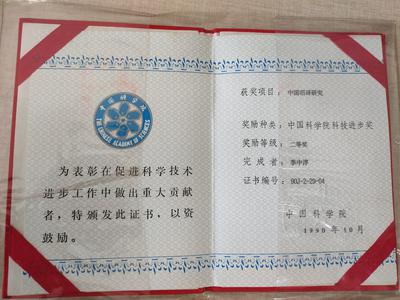 中国科学院
THE CHINESE ACADEMY OF SCIENCES
为表彰在促进科学技术
进步工作中做出重大贡献
者，特颁发此证书，以资
鼓励。
获奖项目：中国沼泽研究
奖励种类：中国科学院科技进步奖
奖励等级：二等奖
完成者：季中淳
证书编号：90J-2-29-04
中国科学院
1990年10月